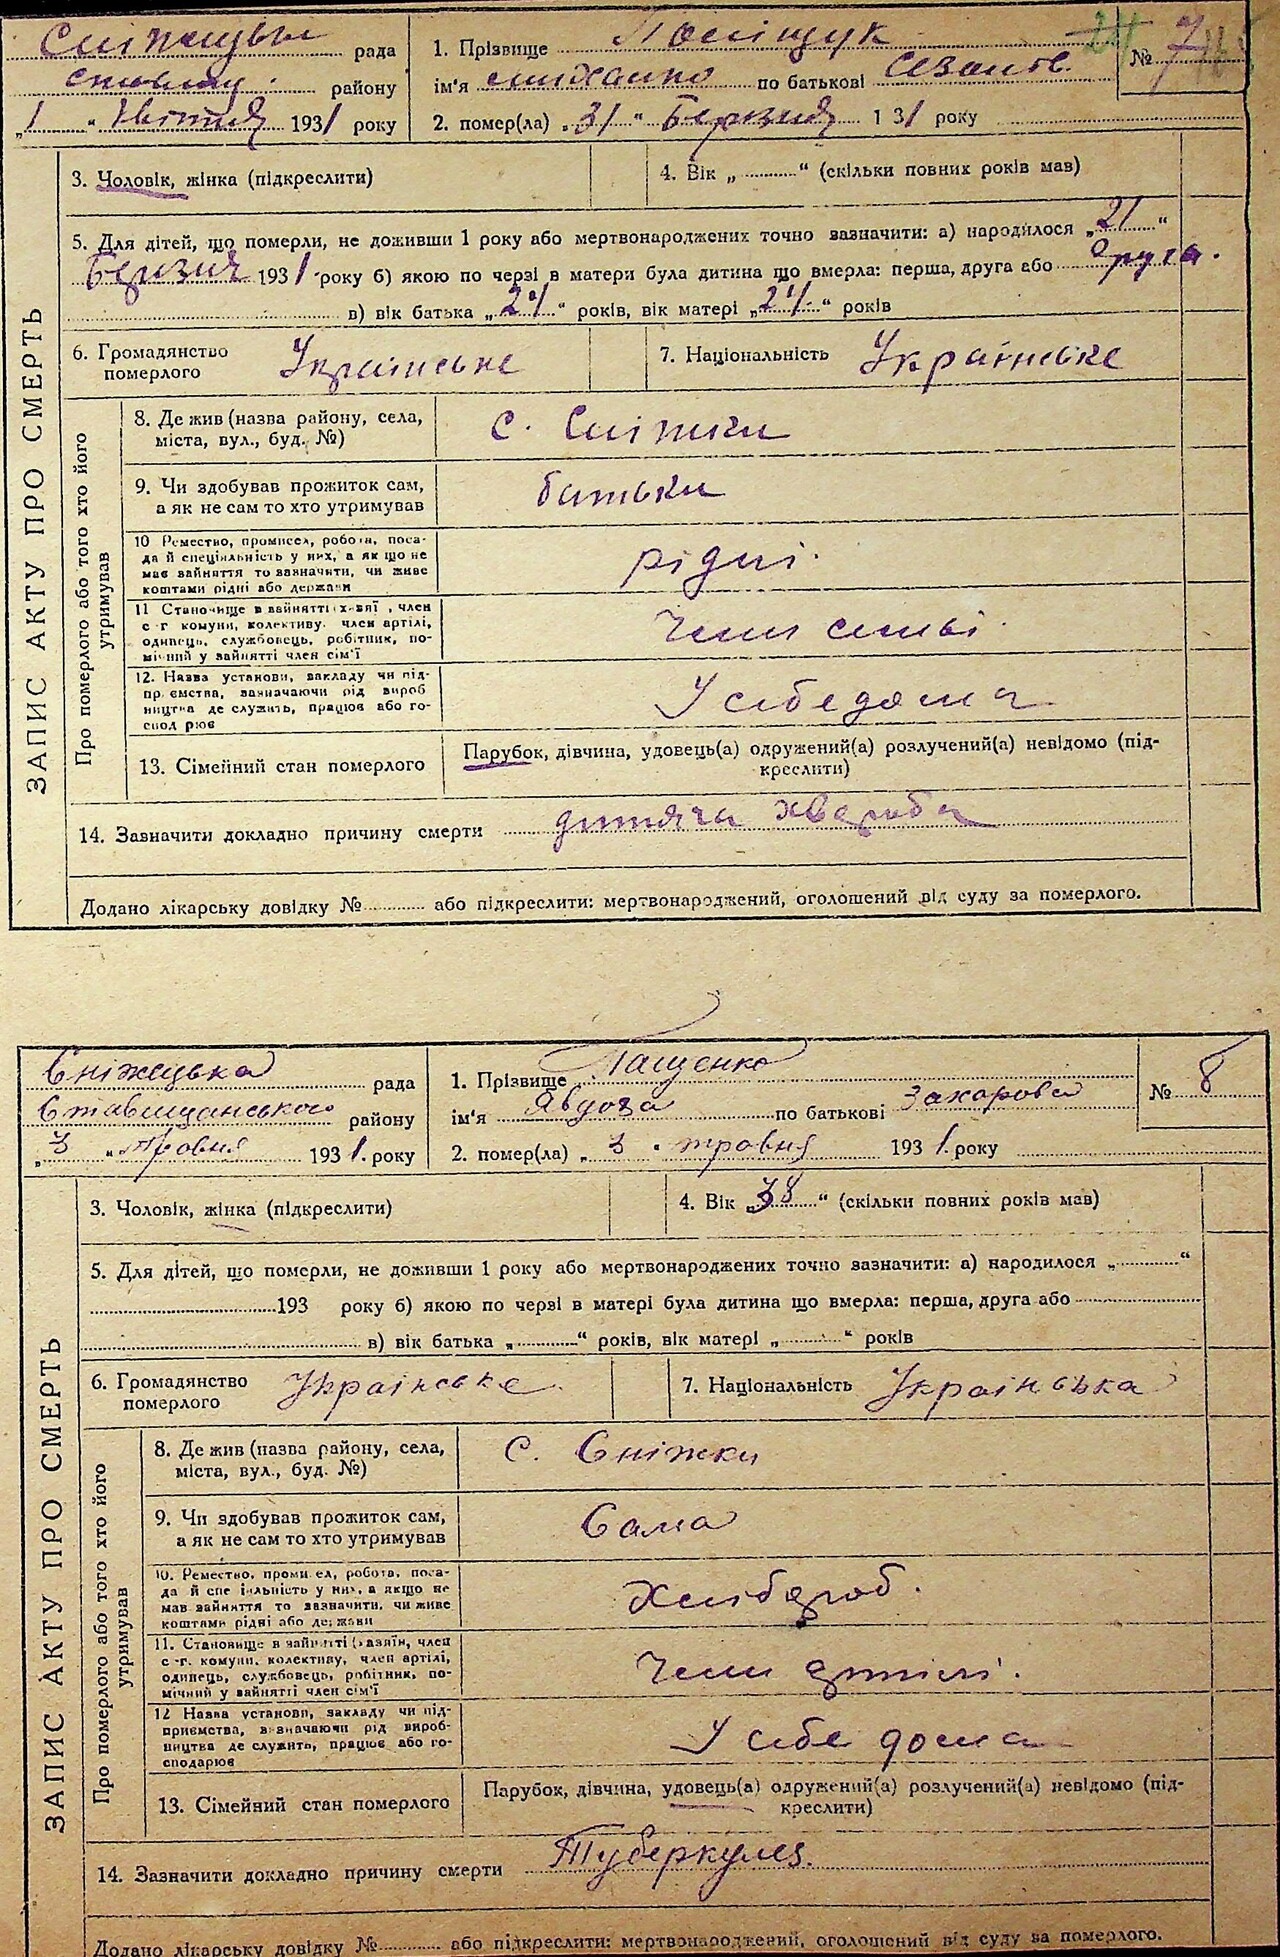 рада
району
„1“ Квітня 1931 року
1. Прізвище Поліщук
ім'я по батькові
2. помер(ла) „31“ Березня 131 року
№ 7
3. Чоловік, жінка (підкреслити)
4. Вік „ “ (скільки повних років мав)
5. Для дітей, що померли, не доживши 1 року або мертвонароджених точно зазначити: а) народилося „21“
Березня 1931 року б) якою по черзі в матери була дитина що вмерла: перша, друга або друга.
в) вік батька „ “ років, вік матері „ “ років
6. Громадянство
померлого
Українське
7. Національність Українське
ЗАПИС АКТУ ПРО СМЕРТЬ
Про померлого або того хто його
утримував
8. Де жив (назва району, села,
міста, вул., буд. №)
с. Сніжки
9. Чи здобував прожиток сам,
а як не сам то хто утримував
батьки
10 Ремество, промисел, робота, поса-
да й спеціяльність у них, а як що не
має зайняття то зазначити, чи живе
коштами рідні або держави
рідні.
11 Становище в зайнятті хазяї, член
с-г комуни, колективу, член артілі,
одинець, службовець, робітник, по-
мічний у зайнятті член сім'ї
Член
12. Назва установи, закладу чи під-
приємства, зазначаючи рід вироб
ництва де служить, працює або го-
спод рює
У себе дома
13. Сімейний стан померлого
Парубок, дівчина, удовець(а) одружений(а) розлучений(а) невідомо (під-
креслити)
14. Зазначити докладно причину смерти дитяча хвороба
Додано лікарську довідку № або підкреслити: мертвонароджений, оголошений від суду за померлого.
Сніжецька рада
Ставищанського району
„3“ травня 1931. року
1. Прізвище Пащенко
ім'я Явдоха по батькові Захарова
2. помер(ла) „3“ травня 1931. року
№ 8
3. Чоловік, жінка (підкреслити)
4. Вік „38“ (скільки повних років мав)
5. Для дітей, що померли, не доживши 1 року або мертвонароджених точно зазначити: а) народилося „ “
193 року б) якою по черзі в матері була дитина що вмерла: перша, друга або
в) вік батька „ “ років, вік матері „ “ років
6. Громадянство
померлого
Українське
7. Національність Українська
ЗАПИС АКТУ ПРО СМЕРТЬ
Про померлого або того хто його
утримував
8. Де жив (назва району, села,
міста, вул., буд. №)
с. Сніжки
9. Чи здобував прожиток сам,
а як не сам то хто утримував
Сама
10. Ремество, проми ел, робота, поса-
да й спе іяльність у них, а якщо не
мав зайняття то зазначити, чи живе
коштами рідні або держави
Хлібороб.
11. Становище в зайнятті (хазяїн, член
с-г. комуни, колективу, член артілі,
одинець, службовець, робітник, по-
мічний у зайнятті член сім'ї
Член артілі.
12 Назва установи, закладу чи під-
приємства, в значаючи рід вироб-
ництва де служить, працює або го-
сподарює
У себе дома
13. Сімейний стан померлого
Парубок, дівчина, удовець(а) одружений(а) розлучений(а) невідомо (під-
креслити)
14. Зазначити докладно причину смерти Туберкульз.
Додано лікарську довідку № або підкреслити: мертвонароджений, оголошений від суду за померлого.